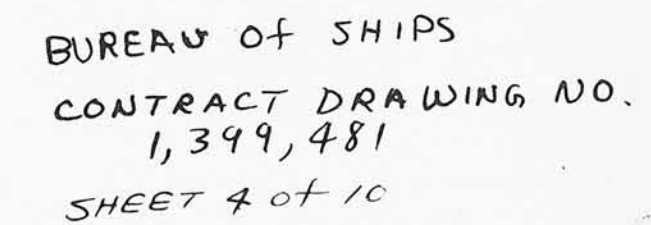 BUREAU Of SHIPS
CONTRACT DRAWING NO.
1,399,481
SHEET 4 of 10